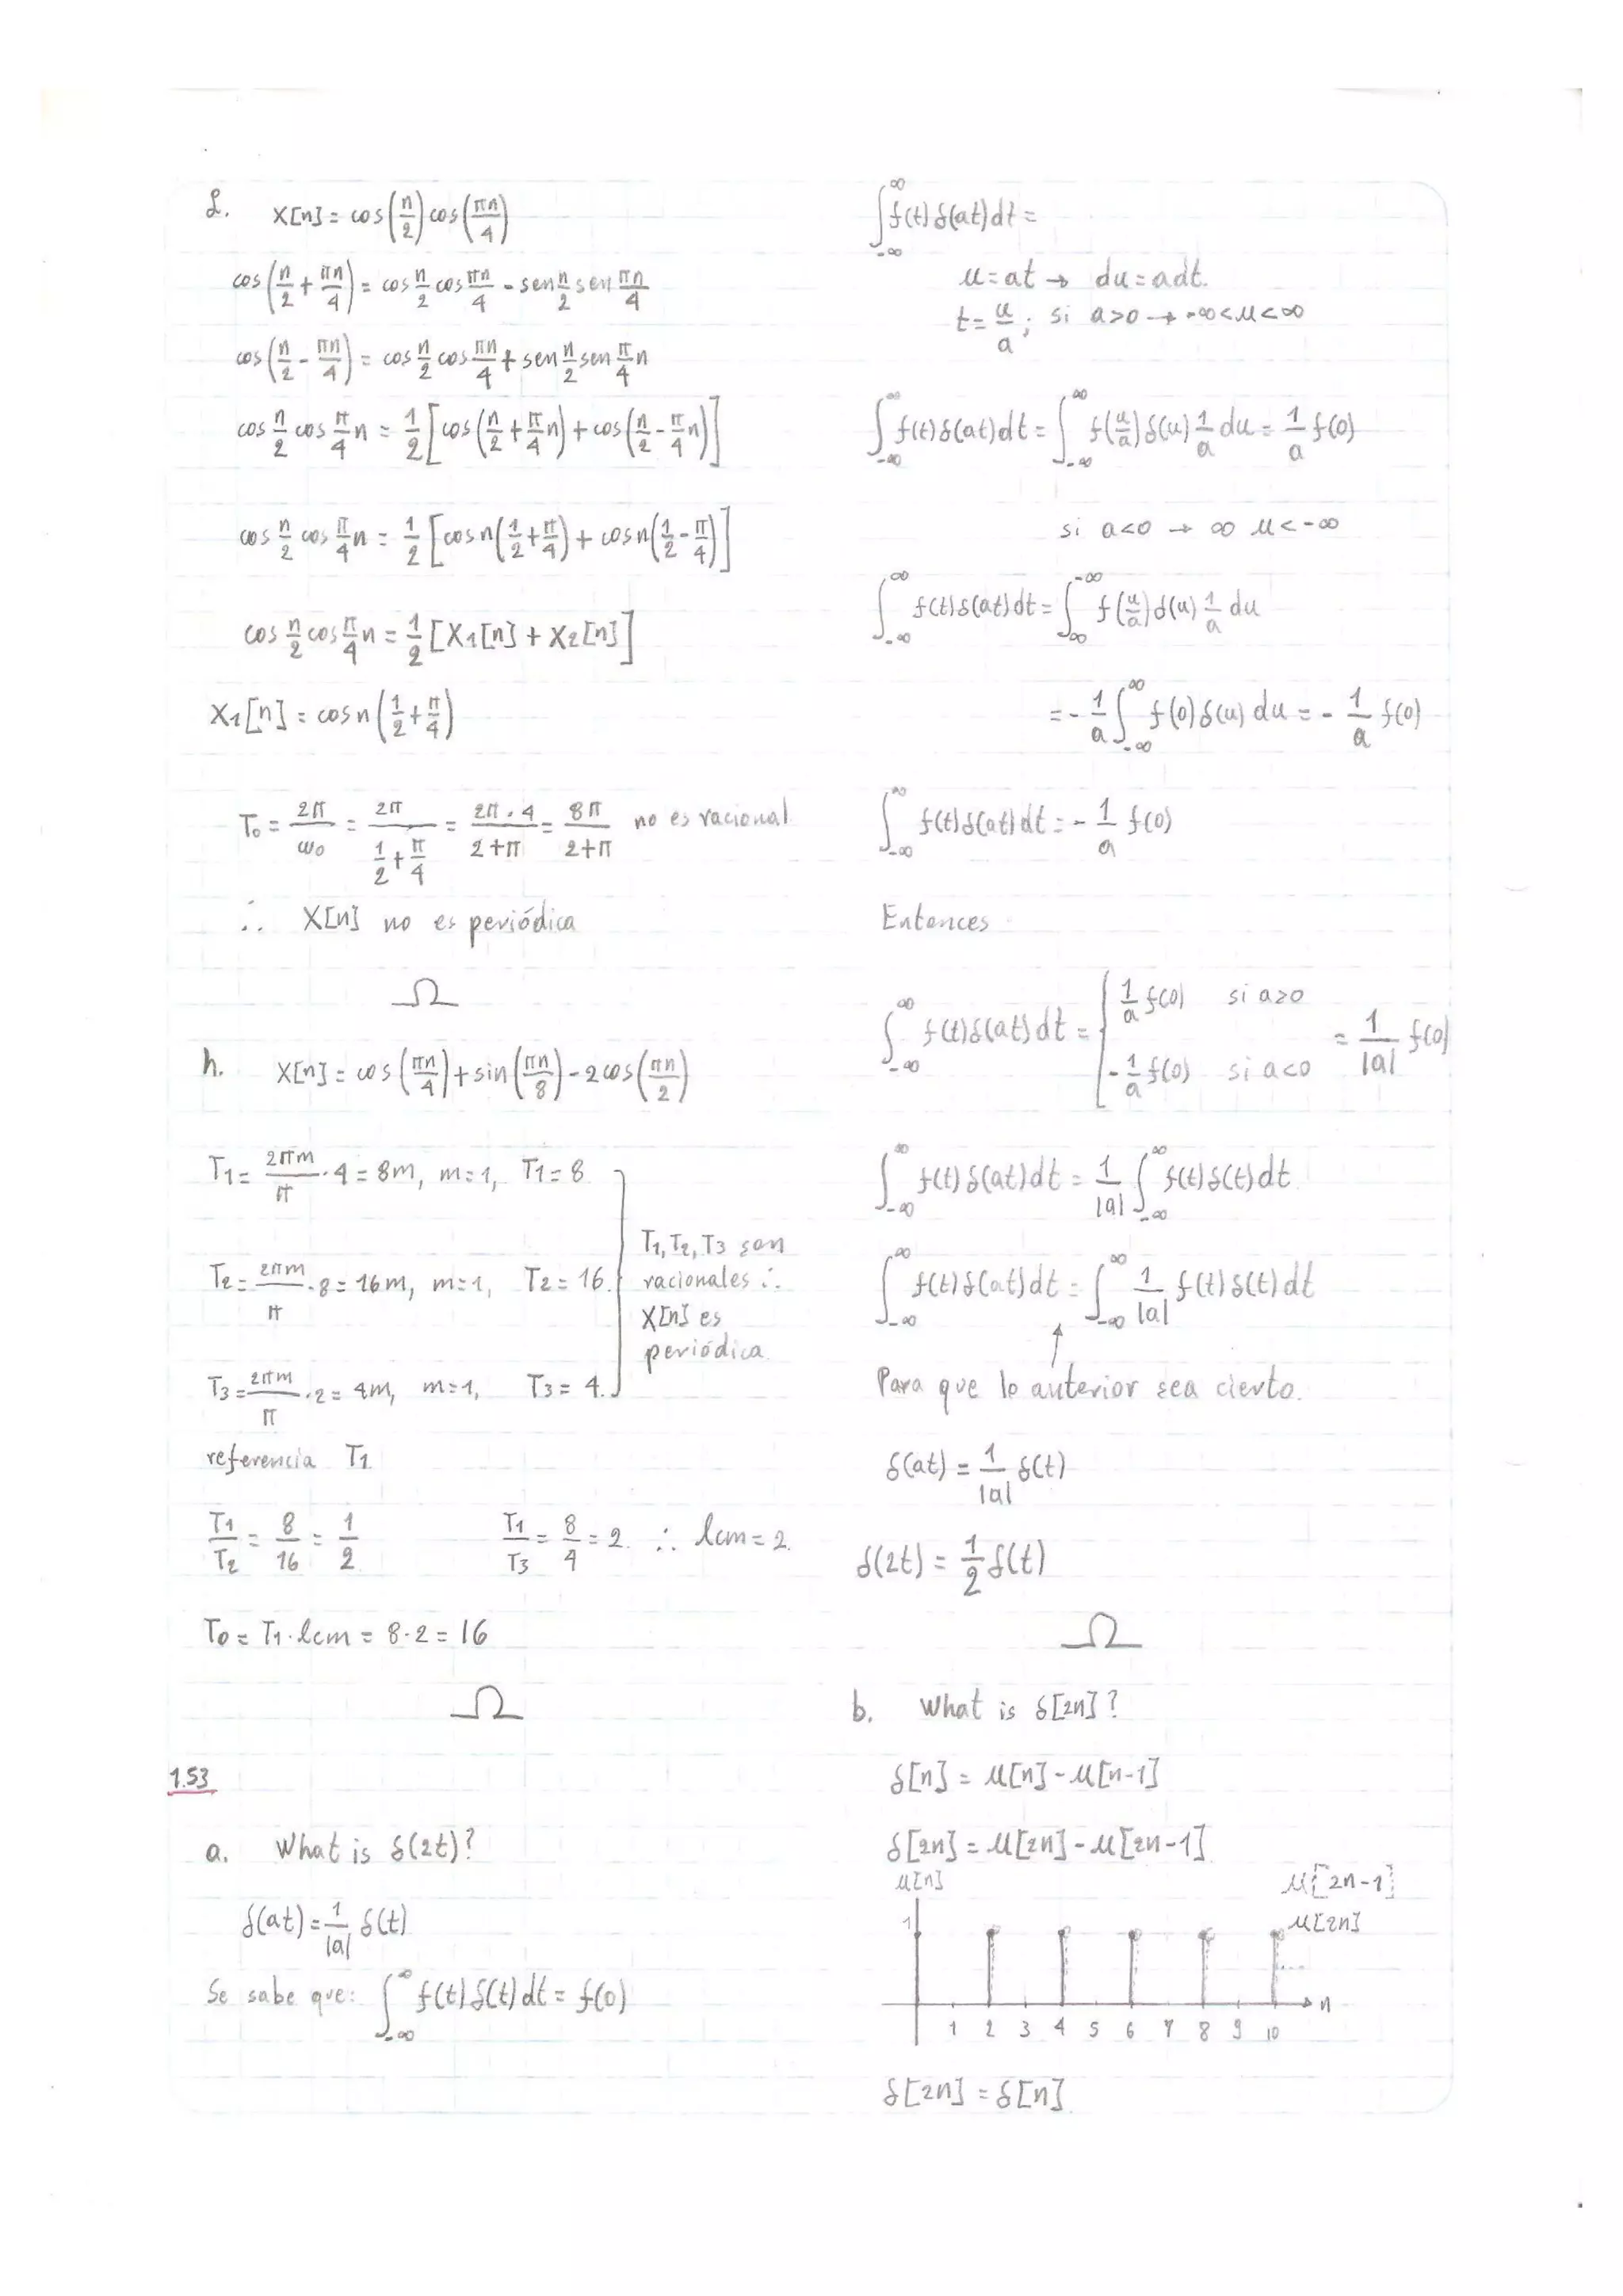 g. x[n] = cos(n/2) cos(πn/4)
cos(n/2 + πn/4) = cos n/2 cos πn/4 - sen n/2 sen πn/4
cos(n/2 - πn/4) = cos n/2 cos πn/4 + sen n/2 sen π/4 n
cos n/2 cos π/4 n = 1/2 [cos(n/2 + π/4 n) + cos(n/2 - π/4 n)]
cos n/2 cos π/4 n = 1/2 [cos n(1/2 + π/4) + cos n(1/2 - π/4)]
cos n/2 cos π/4 n = 1/2 [X1[n] + X2[n]]
X1[n] = cos n(1/2 + π/4)
To = 2π/ωo = 2π/(1/2 + π/4) = 2π·4/(2+π) = 8π/(2+π) no es racional
∴ X[n] no es periódica
Ω
h. X[n] = cos(πn/4) + sin(πn/8) - 2cos(πn/2)
T1 = 2πm/π ·4 = 8m, m=1, T1 = 8.
T2 = 2πm/π ·8 = 16m, m=1, T2 = 16.
T3 = 2πm/π ·2 = 4m, m=1, T3 = 4.
T1, T2, T3 son
racionales ∴
X[n] es
periódica.
referencia T1.
T1/T2 = 8/16 = 1/2 T1/T3 = 8/4 = 2. ∴ lcm = 2.
To = T1·lcm = 8·2 = 16
Ω
1.53
a. What is δ(2t)?
δ(at) = 1/|a| δ(t)
Se sabe que: ∫_{-∞}^{∞} f(t)δ(t)dt = f(0)
∫_{-∞}^{∞} f(t)δ(at)dt =
u = at → du = adt.
t = u/a ; si a>0 → -∞<u<∞
∫_{-∞}^{∞} f(t)δ(at)dt = ∫_{-∞}^{∞} f(u/a)δ(u) 1/a du = 1/a f(0)
si a<0 → ∞ u<-∞
∫_{-∞}^{∞} f(t)δ(at)dt = ∫_{∞}^{-∞} f(u/a)δ(u) 1/a du
= - 1/a ∫_{-∞}^{∞} f(0)δ(u)du = - 1/a f(0)
∫_{-∞}^{∞} f(t)δ(at)dt = - 1/a f(0)
Entonces
∫_{-∞}^{∞} f(t)δ(at)dt = { 1/a f(0) si a>0
-1/a f(0) si a<0 = 1/|a| f(0)
∫_{-∞}^{∞} f(t)δ(at)dt = 1/|a| ∫_{-∞}^{∞} f(t)δ(t)dt.
∫_{-∞}^{∞} f(t)δ(at)dt = ∫_{-∞}^{∞} 1/|a| f(t)δ(t)dt
↑
Para que lo anterior sea cierto.
δ(at) = 1/|a| δ(t)
δ(2t) = 1/2 δ(t)
Ω
b. What is δ[2n]?
δ[n] = u[n] - u[n-1]
δ[2n] = u[2n] - u[2n-1]
u[n] u[2n-1]
1 u[2n]
....
n
1 2 3 4 5 6 7 8 9 10
δ[2n] = δ[n]